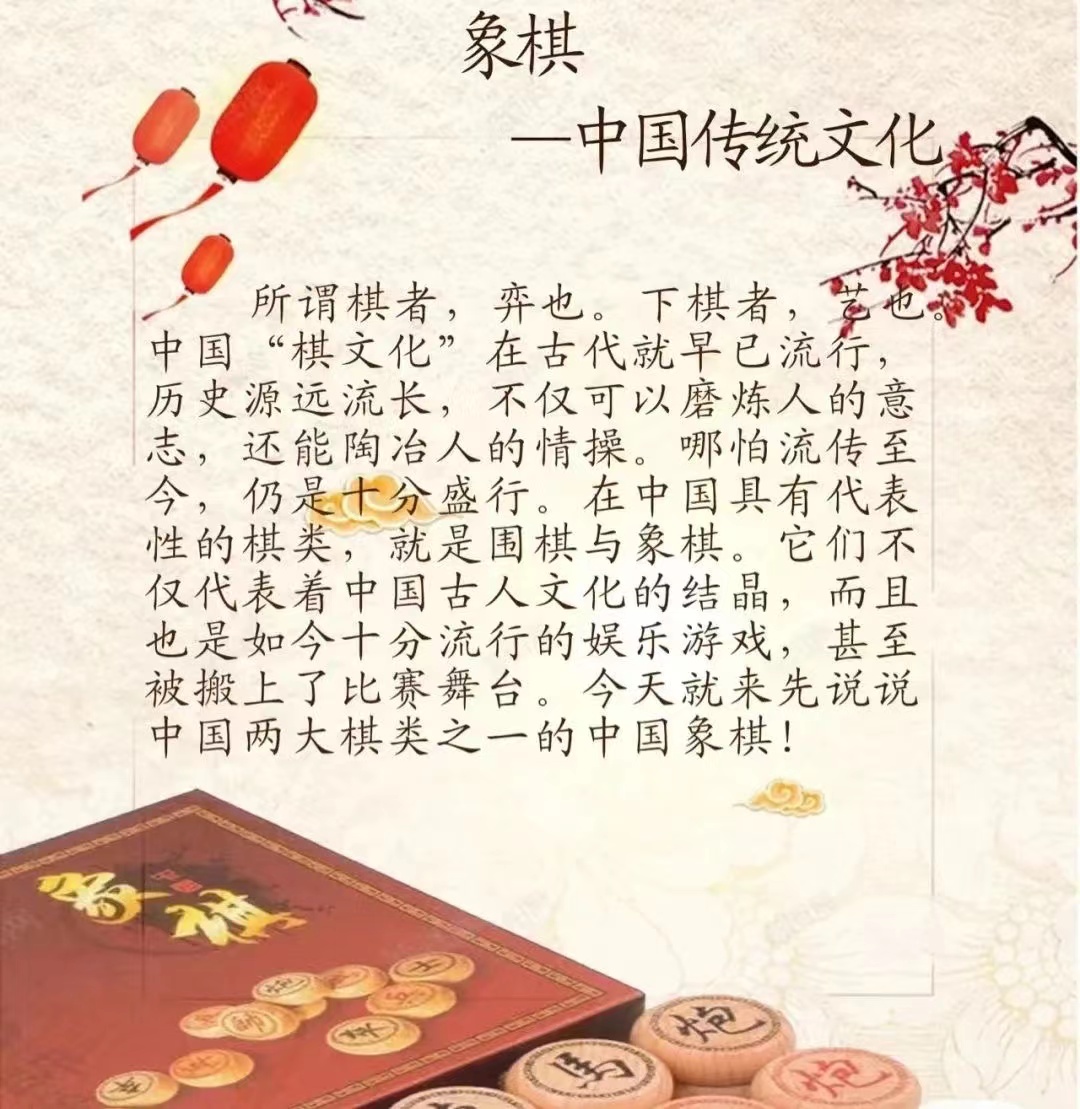 象棋
—中国传统文化
所谓棋者，弈也。下棋者，艺也。
中国“棋文化”在古代就早已流行，
历史源远流长，不仅可以磨炼人的意
志，还能陶冶人的情操。哪怕流传至
今，仍是十分盛行。在中国具有代表
性的棋类，就是围棋与象棋。它们不
仅代表着中国古人文化的结晶，而且
也是如今十分流行的娱乐游戏，甚至
被搬上了比赛舞台。今天就来先说说
中国两大棋类之一的中国象棋！
象棋
炮
士
兵
炮
馬
炮